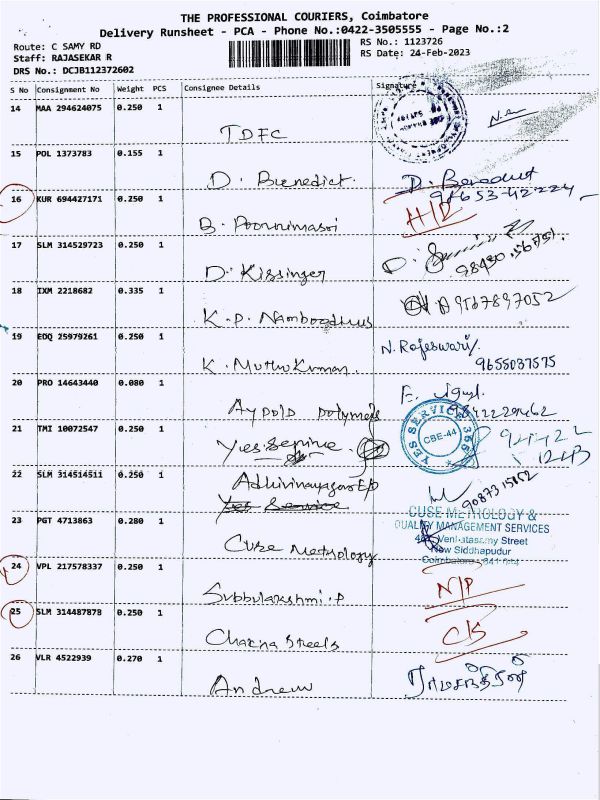 THE PROFESSIONAL COURIERS, Coimbatore
Delivery Runsheet - PCA - Phone No.:0422-3505555 - Page No.:2
Route: C SAMY RD
RS No.: 1123726
Staff: RAJASEKAR R
RS Date: 24-Feb-2023
DRS No.: DCJB112372602
S No Consignment No Weight PCS Consignee Details Signature
14 MAA 294624075 0.250 1
TDFC
15 POL 1373783 0.155 1
D. Benedict.
D. Benedict
16 KUR 694427171 0.250 1
B. Poornimasri
H/D
17 SLM 314529723 0.250 1
D. Kissinger
98430.56751.
18 IXM 2218682 0.335 1
K. P. 
9567897052
19 EDQ 25979261 0.250 1
K. Muthu Kumar.
N. Rajeswari
9655037575
20 PRO 14643440 0.080 1
Aypols polymers
21 TMI 10072547 0.250 1
Yes Service.
YES SERVICE 366
CBE-44
22 SLM 314514511 0.250 1
Adhivinayagar E/P
Yes Service
9087315852
23 PGT 4713863 0.280 1
Cuse Metrology
CUSE METROLOGY &
QUALITY MANAGEMENT SERVICES
Venkatasamy Street
New Siddhapudur
Coimbatore
24 VPL 217578337 0.250 1
Subbulakshmi. P
N/P
25 SLM 314487878 0.250 1
Steels
C/S
26 VLR 4522939 0.270 1
Andrew
ராமசந்திரன்